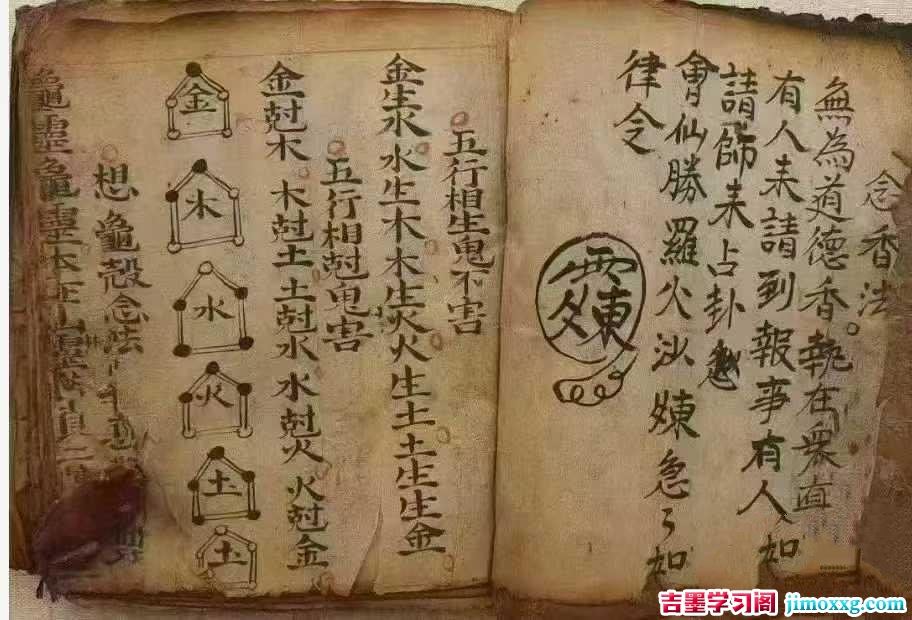 念香法
無為道德香執在眾直
有人未請到報事有人如
請師未占卦
會仙勝羅火沙煉急了如
律令
五行相生鬼不害
金生水水生木木生火火生土土生生金
五行相尅鬼害
金尅木木尅土土尅水水尅火火尅金
金
木
水
火
土
土
想龜殼念法
龜靈龜靈本在山靈
吉墨学习阁 jimoxxg.com